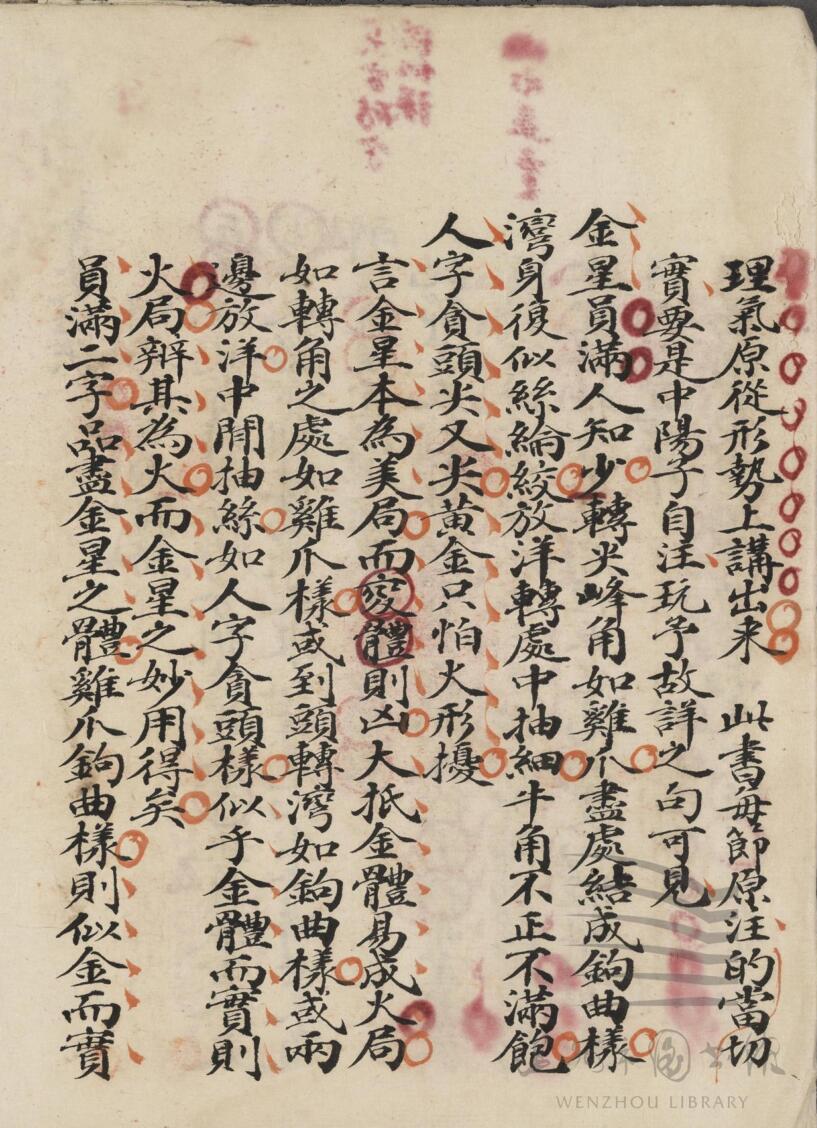 理氣原從形勢上講出来　此書每節原注的當切
實要是中陽子自注玩予故詳之句可見
金星員滿人知少轉尖峰角如雞爪盡處結成鉤曲樣
灣身復似絲綸絞放洋轉處中抽細牛角不正不滿飽
人字貪頭尖又尖黃金只怕火形擾
言金星本為美局而變體則凶大抵金體易成火局
如轉角之處如雞爪樣或到頭轉灣如鉤曲樣或兩
邊放洋中間抽絲如人字貪頭樣似乎金體而實則
火局辨其為火而金星之妙用得矣
員滿二字品盡金星之體雞爪鉤曲樣則似金而實
WENZHOU LIBRARY